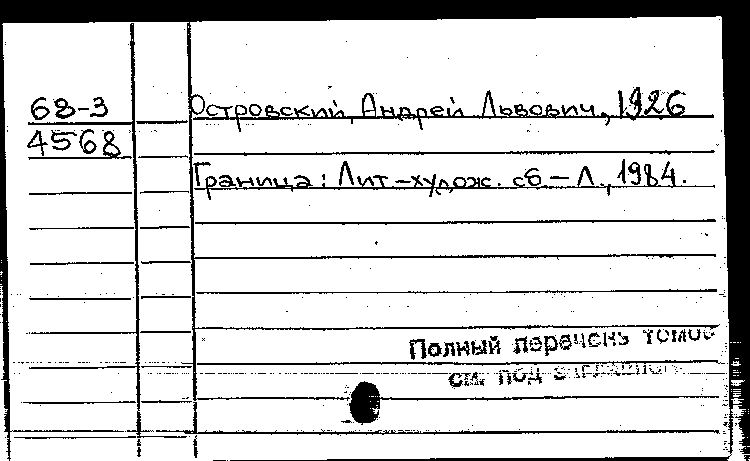 68-3
4568
Островский, Андрей Львович, 1926
Граница: Лит-худож. сб - Л., 1984.
Полный перечень томов
см. под заглавием